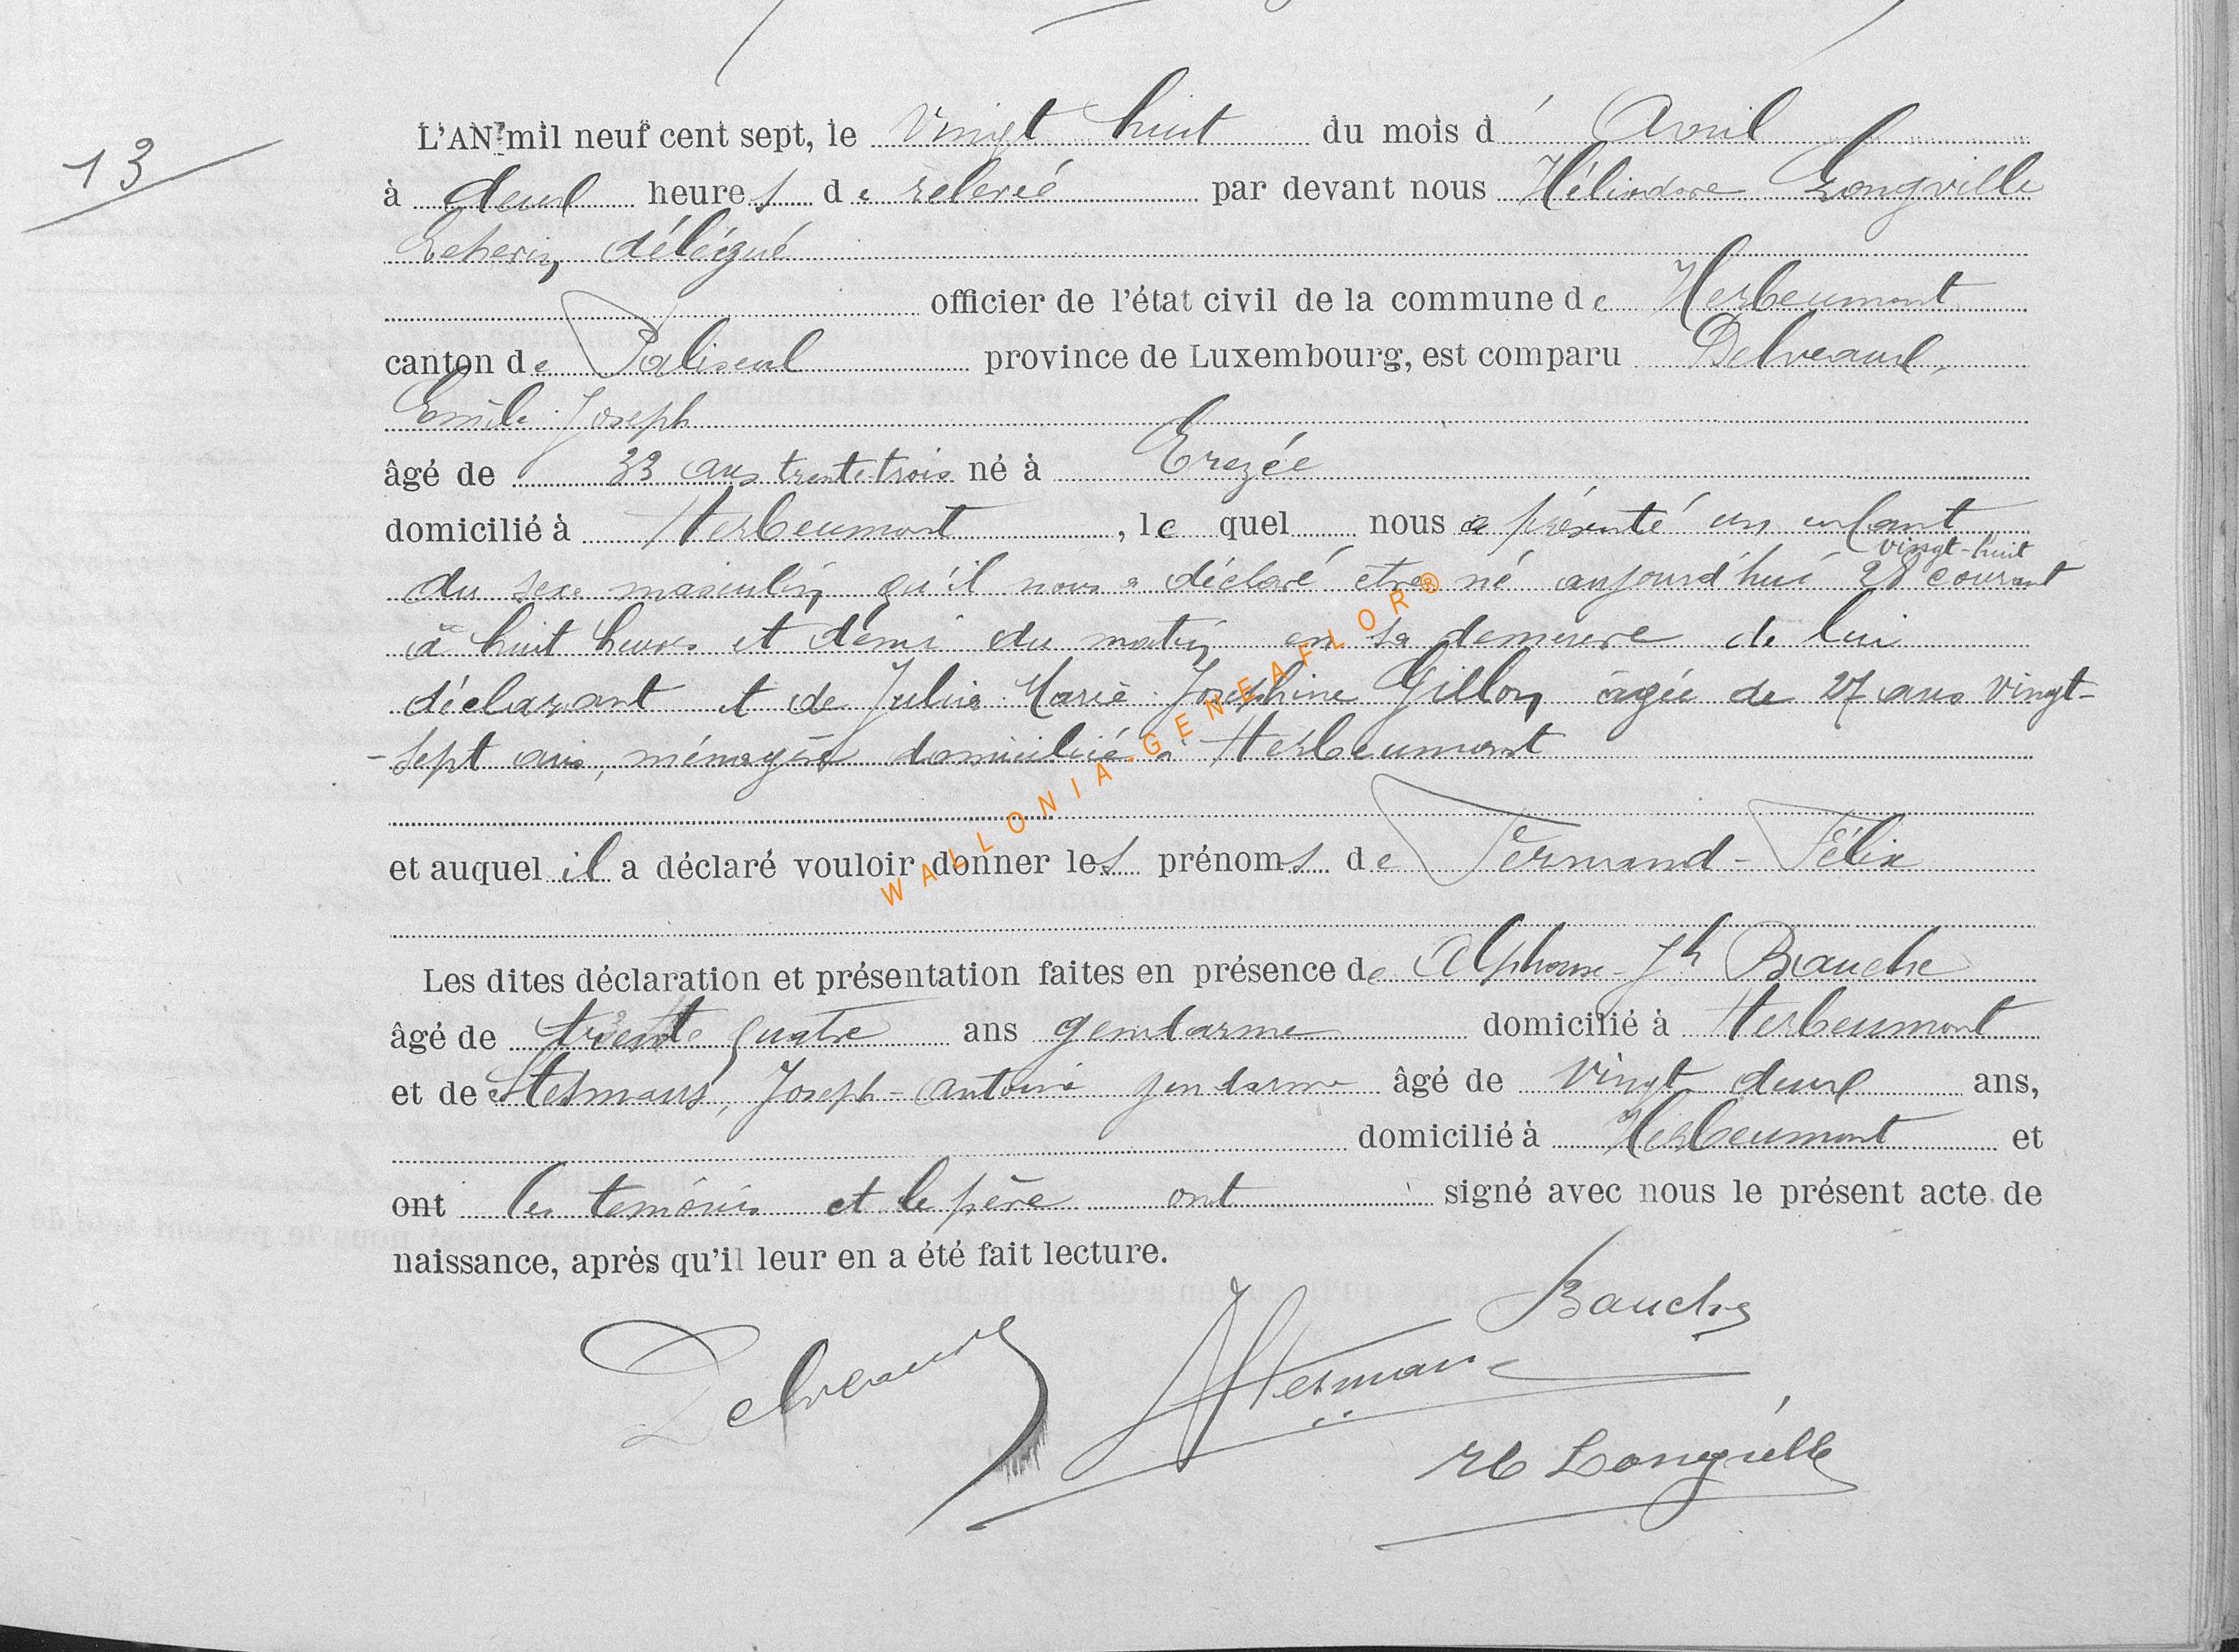 13
L'AN mil neuf cent sept, le vingt huit du mois d' Avril
à deux heures de relevée par devant nous Héliodore Longville
Echevin, délégué
officier de l'état civil de la commune de Herbeumont
canton de Paliseul province de Luxembourg, est comparu Delveaux,
Emile Joseph
âgé de 33 ans trente-trois né à Erezée
domicilié à Herbeumont, lequel nous a présenté un enfant
vingt-huit
du sexe masculin, qu'il nous a déclaré être né aujourd'hui 28 courant
à huit heures et demi du matin en sa demeure de lui
déclarant et de Julie Marie Joséphine Gillon, âgée de 27 ans vingt-
-sept ans, ménagère domiciliée à Herbeumont
et auquel il a déclaré vouloir donner les prénoms de Fernand-Félix
Les dites déclaration et présentation faites en présence de Alphonse-Jh Bauche
âgé de trente quatre ans gendarme domicilié à Herbeumont
et de Hermans, Joseph-Antoine gendarme âgé de vingt deux ans,
domicilié à Herbeumont et
ont les témoins et le père ont signé avec nous le présent acte de
naissance, après qu'il leur en a été fait lecture.
Bauche
Delveaux Hermans
H Longville
WALLONIA-GENEAFLOR®